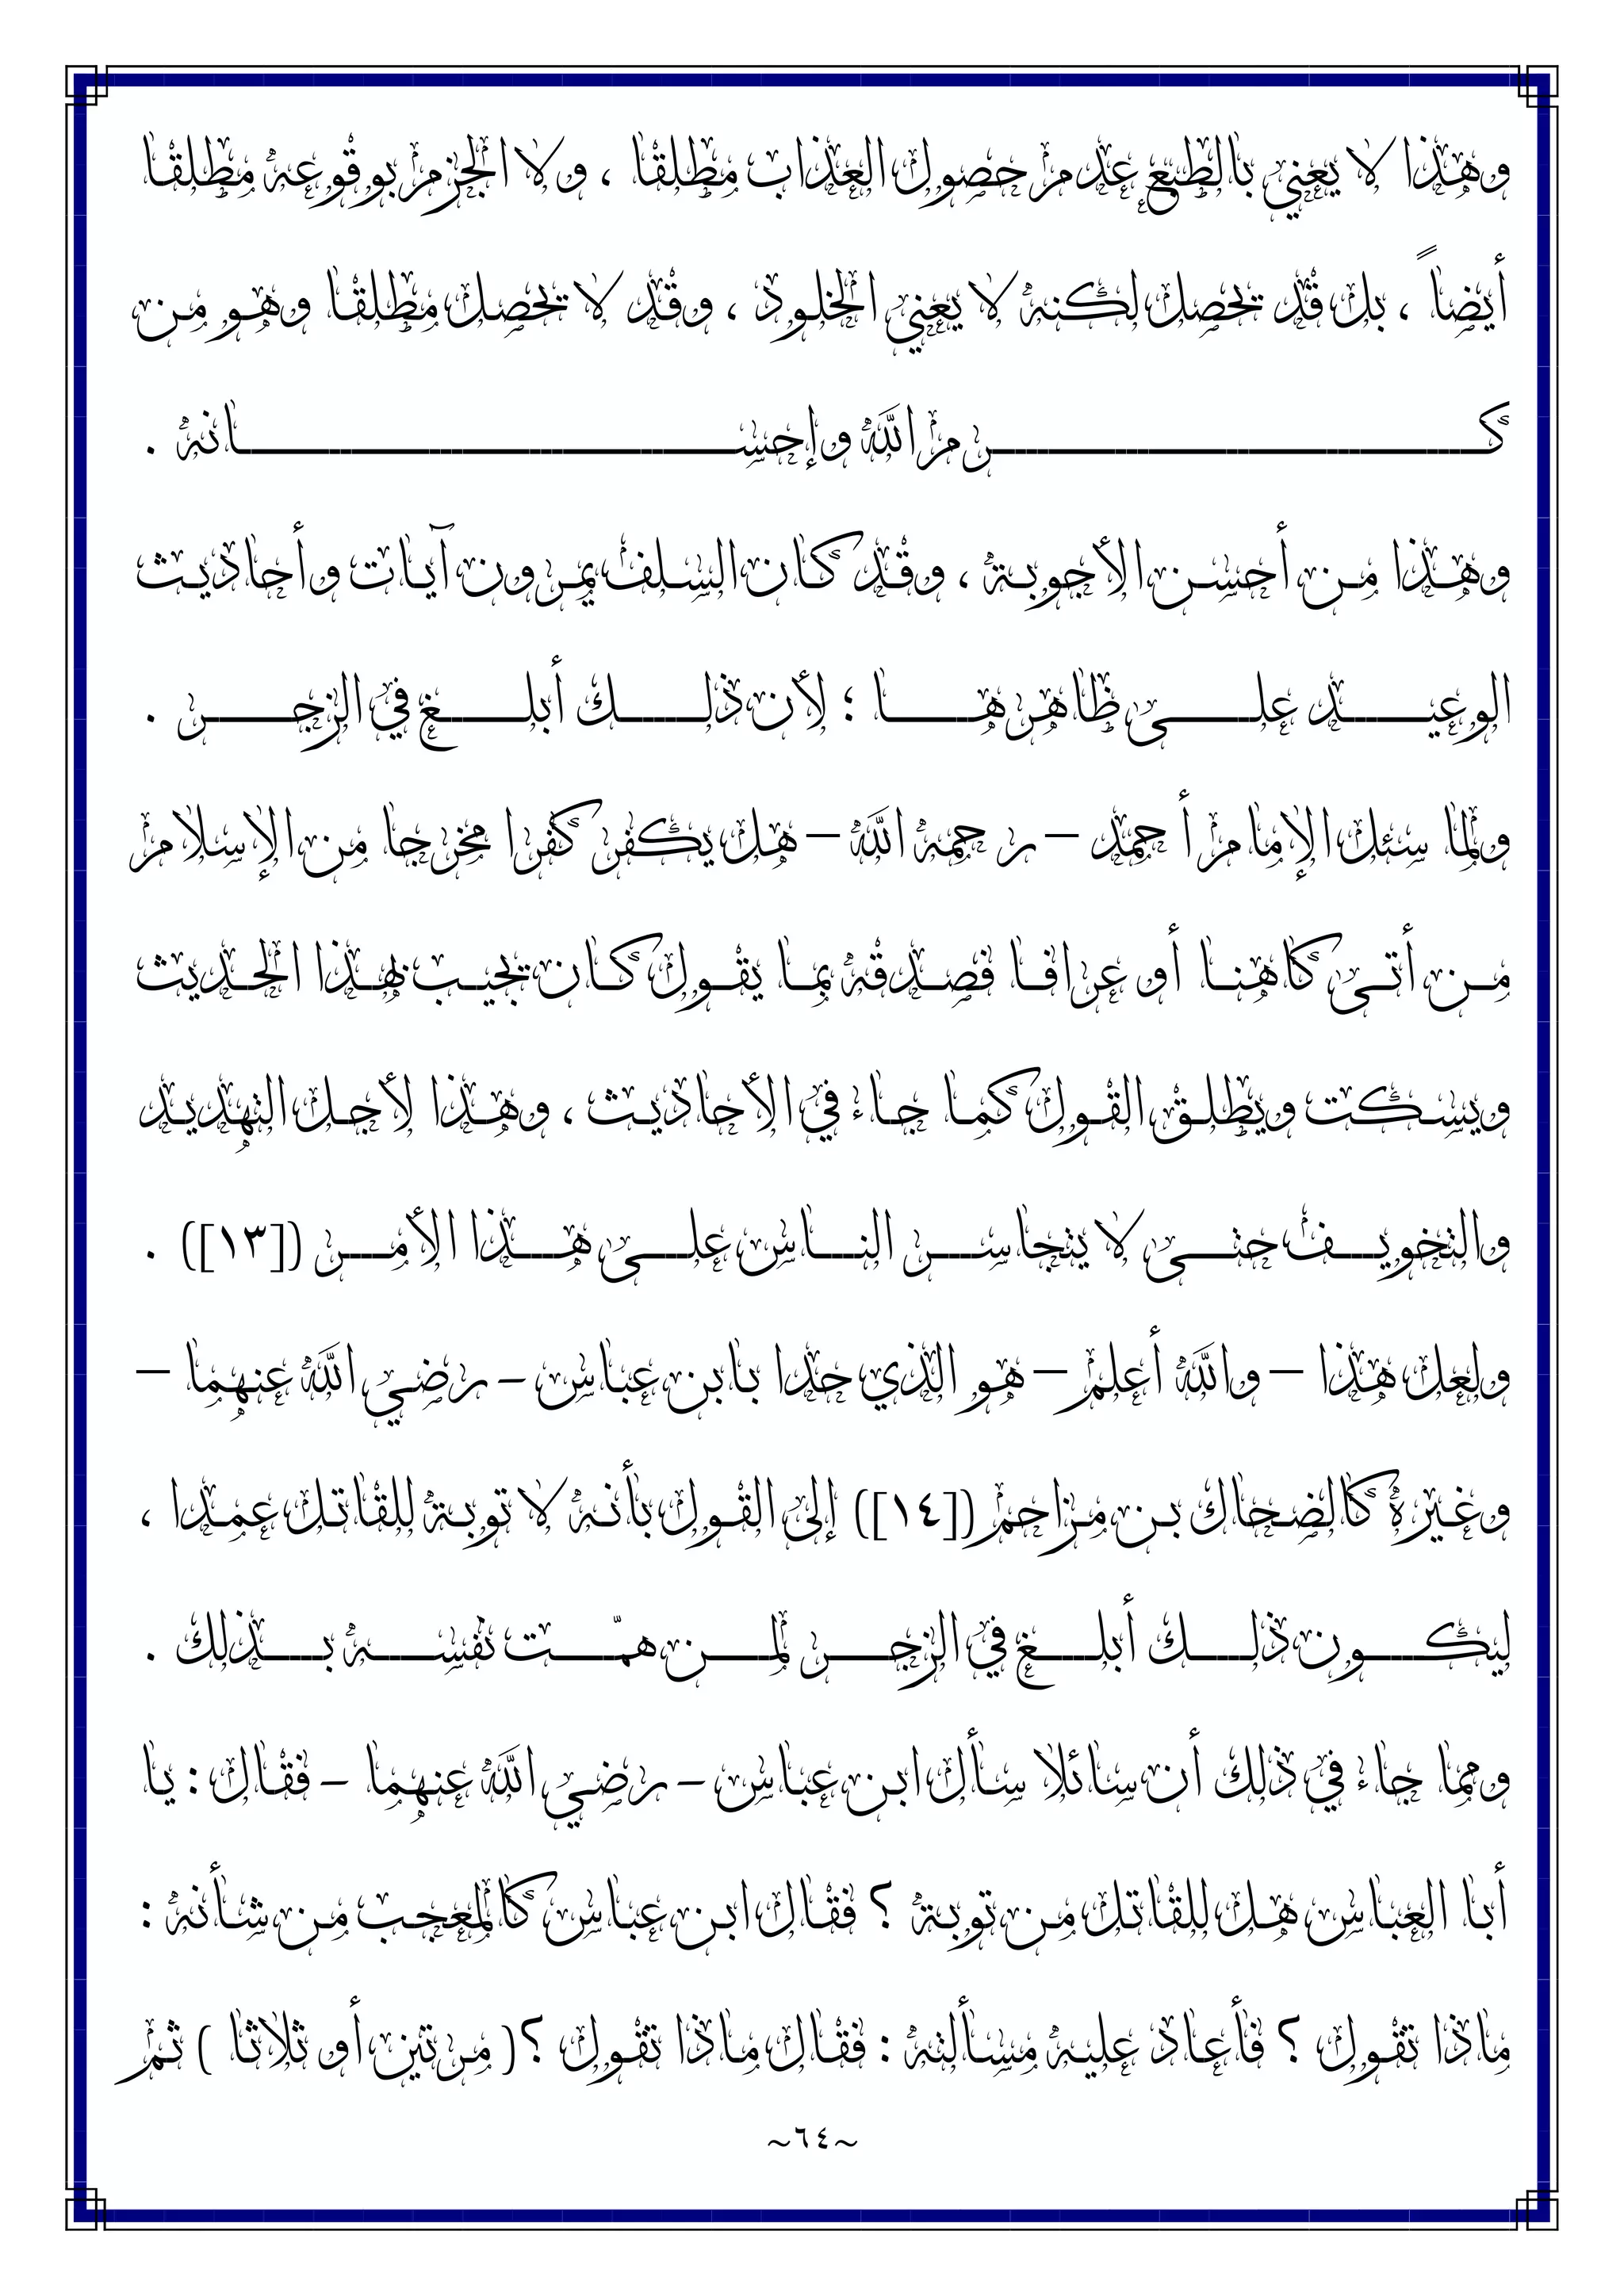 وهذا لا يعني بالطبع عدم حصول العذاب مطلقا ، ولا الجزم بوقوعه مطلقا
أيضاً ، بل قد تحصل لكنه لا يعني الخلود ، وقد لا تحصل مطلقا وهو من
كرم الله وإحسانه .
وهذا من أحسن الأجوبة ، وقد كان السلف يمرون آيات وأحاديث
الوعيد على ظاهرها ؛ لأن ذلك أبلغ في الزجر .
ولما سئل الإمام أحمد – رحمه الله – هل يكفر كفرا مخرجا من الإسلام
من أتى كاهنا أو عرافا فصدقه بما يقول كان يجيب بهذا الحديث
ويسكت ويطلق القول كما جاء في الأحاديث ، وهذا لأجل التهديد
والتخويف حتى لا يتجاسر الناس على هذا الأمر ([١٣]) .
ولعل هذا – والله أعلم – هو الذي حدا بابن عباس - رضي الله عنهما –
وغيره كالضحاك بن مزاحم ([١٤]) إلى القول بأنه لا توبة للقاتل عمدا ،
ليكون ذلك أبلغ في الزجر لمن همّت نفسه بذلك .
ومما جاء في ذلك أن سائلا سأل ابن عباس - رضي الله عنهما - فقال : يا
أبا العباس هل للقاتل من توبة ؟ فقال ابن عباس كالمعجب من شأنه :
ماذا تقول ؟ فأعاد عليه مسألته : فقال ماذا تقول ؟ ( مرتين أو ثلاثا ) ثم
~٦٤~